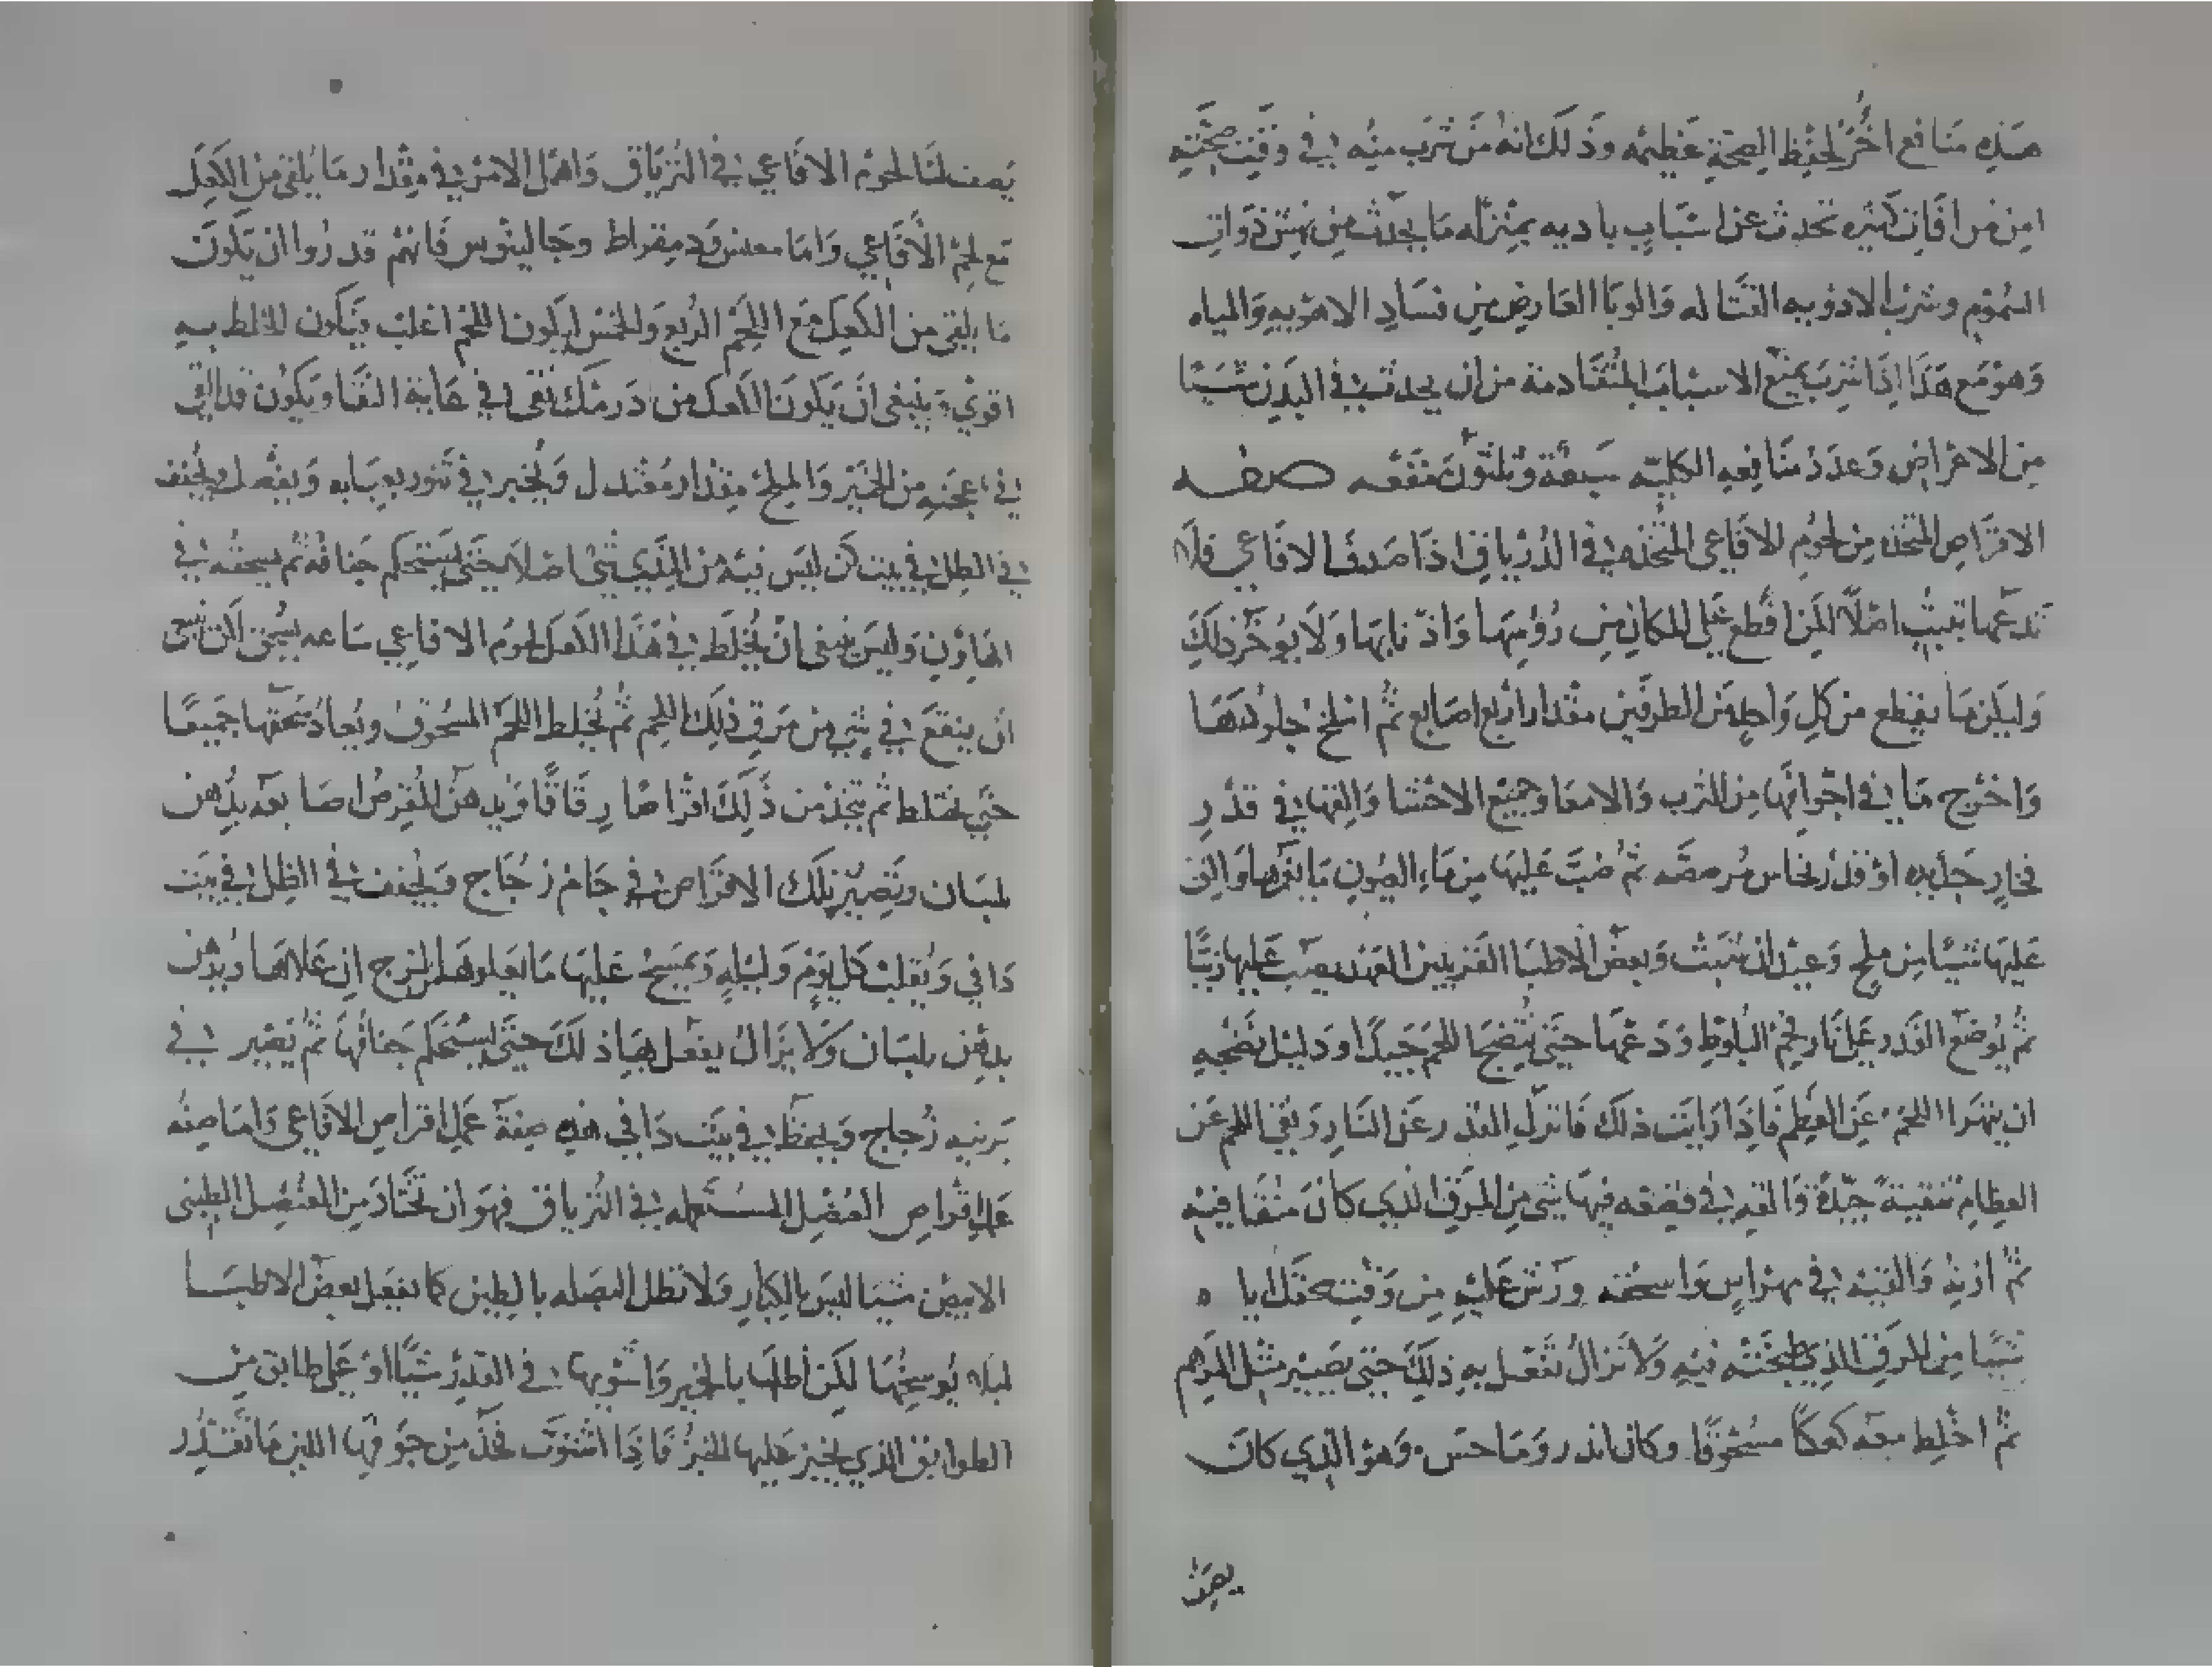 هذه منافع اخر لحفظ الصحة عظيمه وذلك انه من شرب منه في وقت صحته
امن من افات كثيره تحدث عن اسباب باديه بمنزله ما يحدث من نهش ذوات
السموم وشرب الادويه القتاله والوبا العارض من فساد الاهويه والمياه
وهو مع هذا اذا شرب يمنع الاسباب المتقادمة من ان يحدث في البدن شيا
من الاعراض وعدد منافعه الكليه سبعة وثلثون منفعه صفه
الاقراص المتخذه من لحوم الافاعي المتخذه في الدرياق اذا صدف الافاعي فلا
تدعها تبيت اصلا لكن اقطع على المكان من رؤسها واذنابها ولا يوخر ذلك
وليكن ما يقطع من كل واحد من الطرفين مقدار اربع اصابع ثم اسلخ جلودها
واخرج ما في اجوافها من الثرب والامعا وجميع الاحشا والقها في قدر
فخار جديده او قدر نحاس مرصصه ثم صب عليها من ماء العيون ما يغمرها والق
عليها شيا من ملح وعيدان شبث وبعض الاطبا القريبين العهد يصب عليها زيتا
ثم يوضع القدر على نار فحم البلوط ودعها حتى ينضج اللحم جيدا ودليل نضجه
ان يتهرا اللحم عن العظم فاذا رايت ذلك فانزل القدر عن النار ونقي اللحم عن
العظام تنقية جيدة والقه في قصعه فيها شي من المرق الذي كان منقا فيه
ثم ازنه والقيه في مهراس واسحقه ورش عليه من وقت سحقك ايا ه
شيا من المرق الذي طبخته فيه ولا تزال تفعل به ذلك حتى يصير مثل المرهم
ثم اخلط معه كعكا مسحوقا وكان اندروماخس وهو الذي كان
يصف
يصف لنا لحوم الافاعي في الترياق واهمل الامر في مقدار ما يلقى من الكعك
مع لحم الافاعي واما دمقراط وجالينوس فانهم قدروا ان يكون
ما يلقى من الكعك مع اللحم الربع والخمس ليكون اللحم اغلب فيكون الخلط به
اقوي وينبغي ان يكون الكعك من درمك نقي في غاية النقا ويكون قد القي
في عجنه من الخمير والملح مقدار معتدل ويخبز في تنور بعنايه ويفعل ويجفف
في الظل في بيت كن ليس فيه من الندي شي اصلا حتى يستحكم جفافه ثم يسحقه في
الهاون وليس ينبغي ان يخلط في هذا الكعك لحوم الافاعي ساعه يسحق لكن ينبغي
ان ينقع في شي من مرق ذلك اللحم ثم يخلط اللحم المسحوق ويعاد سحقها جميعا
حتى يختلط ثم يتخذ من ذلك اقراصا رقاقا ويدهن المقرص اصابعه بدهن
بلسان وتصير تلك الاقراص في جام زجاج فيجفف في الظل في بيت
دافي ويقلب كل يوم وليله ويمسح عليها ما يعلوها من لزج ان علاها ويدهن
بدهن بلسان ولا يزال يفعل بها ذلك حتى يستحكم جفافها ثم يصير في
برنيه زجاج ويحفظ في بيت دافي هذه صفة عمل اقراص الافاعي واما صفه
عمل اقراص العنصل المستعمله في الترياق فهو ان تختار من العنصل الطيني
الابيض شيا ليس بالكبار ولا تطل البصله بالطين كما يفعل بعض الاطبا
لىلا يوسخها لكن اطلها بالخمير واشويها في القدر شيا او على طابق من
الطوابق الذي يخبز عليها الخبز فاذا اشتوت فخذ من جوفها اللين ما تقتدر